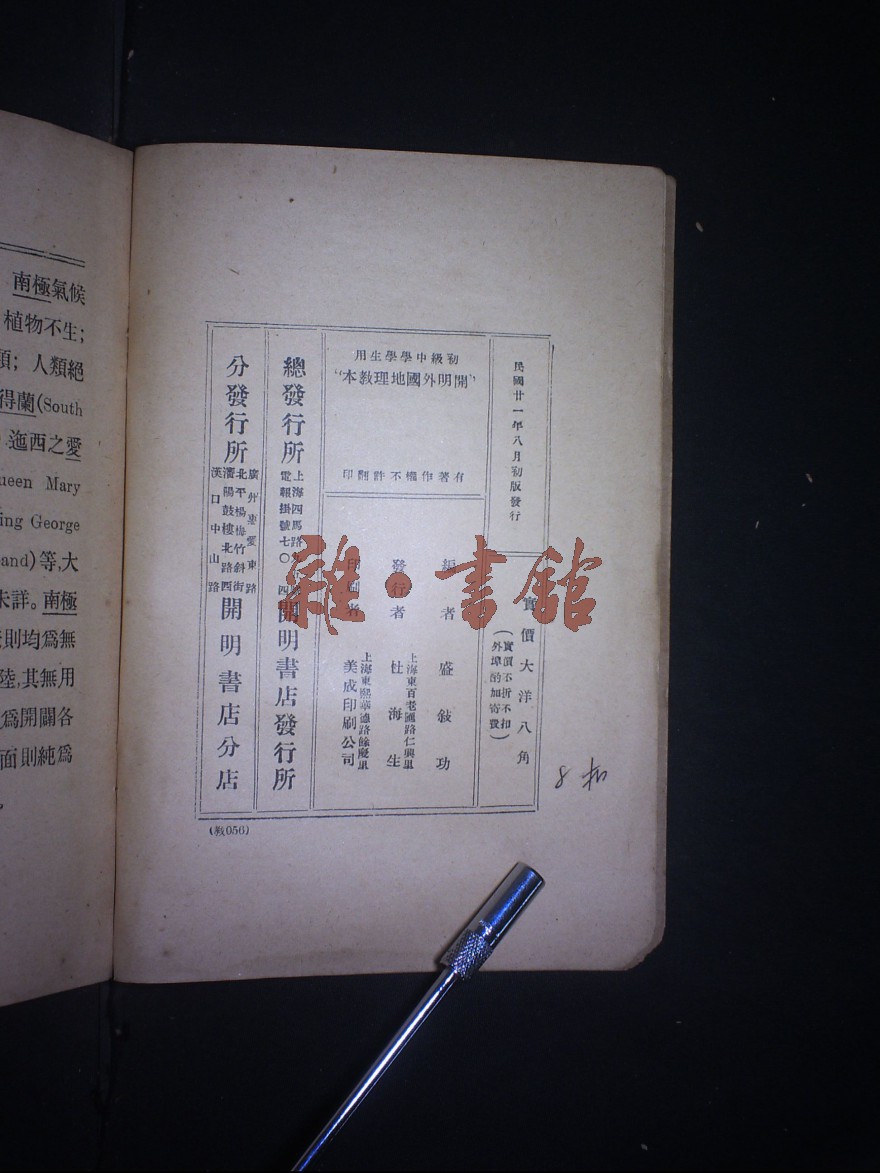 民國廿一年八月初版發行
實價大洋八角
(實價不折不扣
外埠酌加寄費)
初級中學學生用
"開明外國地理教本"
有著作權不許翻印
編者 盛敍功
發行者 杜海生
上海東百老匯路仁興里
印刷者 美成印刷公司
上海東熙華德路餘慶里
總發行所
上海四馬路
電報掛號七〇
四
開明書店發行所
分發行所
廣州惠愛東路
北平楊梅竹斜街
瀋陽鼓樓北路西
漢口中山路
開明書店分店
(教056)
8
雜·書館
南極氣候
植物不生;
類; 人類絕
得蘭(South
迤西之愛
ueen Mary
ing George
and)等,大
未詳。南極
則均爲無
陸,其無用
爲開闢各
面則純爲